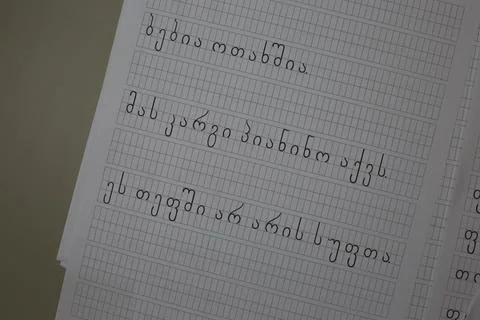 ბებია ოთახშია.
მას კარგი პიანინო აქვს.
ეს თეფში არ არის სუფთა.